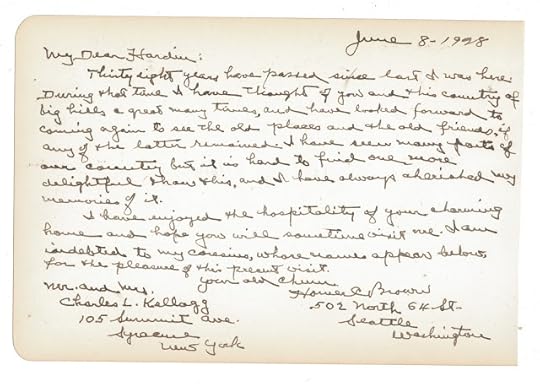 June 8-1928
My Dear Hardin:
Thirty eight years have passed since last I was here.
During that time I have thought of you and this country of
big hills a great many times, and have looked forward to
coming again to see the old places and the old friends, if
any of the latter remained. I have seen many parts of
our country but it is hard to find one more
delightful than this, and I have always cherished my
memories of it.
I have enjoyed the hospitality of your charming
home and hope you will sometime visit me. I am
indebted to my cousins, whose names appear below,
for the pleasure of this present visit.
Your old chum
Homer C Brown
502 North 64 St-
Seattle
Washington
Mr. and Mrs.
Charles L. Kellogg
105 Summit Ave.
Syracuse
New York